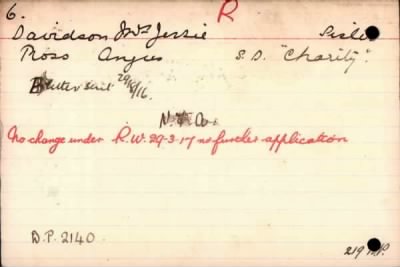 6. R
Davidson Mrs Jessie Sister
Ross Angus S.D. "Charity".
Letter sent 29/8/16.
No change under R.W. 29-3-17 no further application
D.P. 2140. 219 M.P.